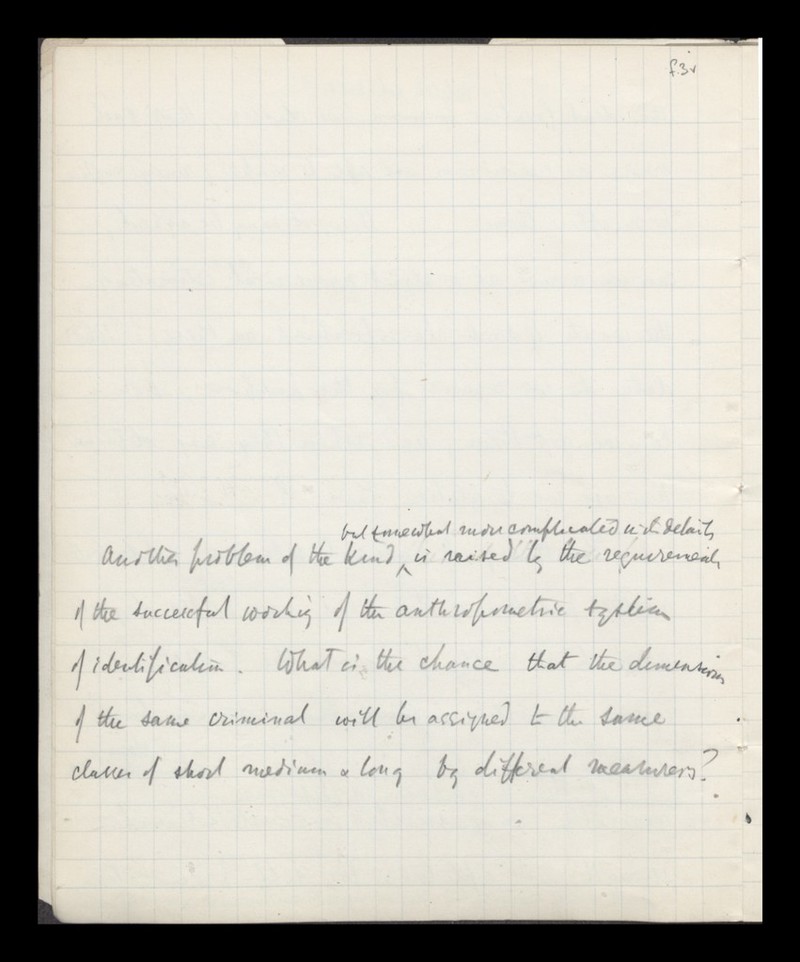 f.3v
but somewhat more complicated in its details
Another problem of the kind ‸ is raised by the requirements
of the successful working of the anthropometric system
of identification. What is the chance that the dimensions
of the same criminal will be assigned to the same
classes of short medium & long by different measurers?